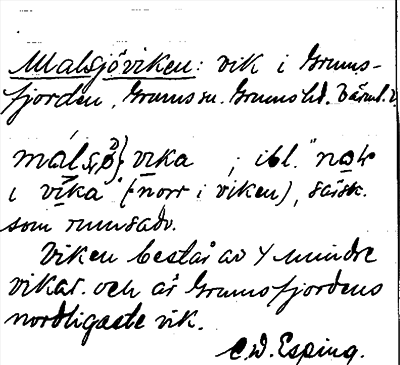 Malsjöviken: vik i Grums-
fjorden, Grums sn. Grums hd. Värml.
vika ; ibl. "norr
i vika (= norr i viken), särsk.
som rumsadv.
Viken består av 4 mindre
vikar och är Grumsfjordens
nordligaste vik.
C.W. Esping.